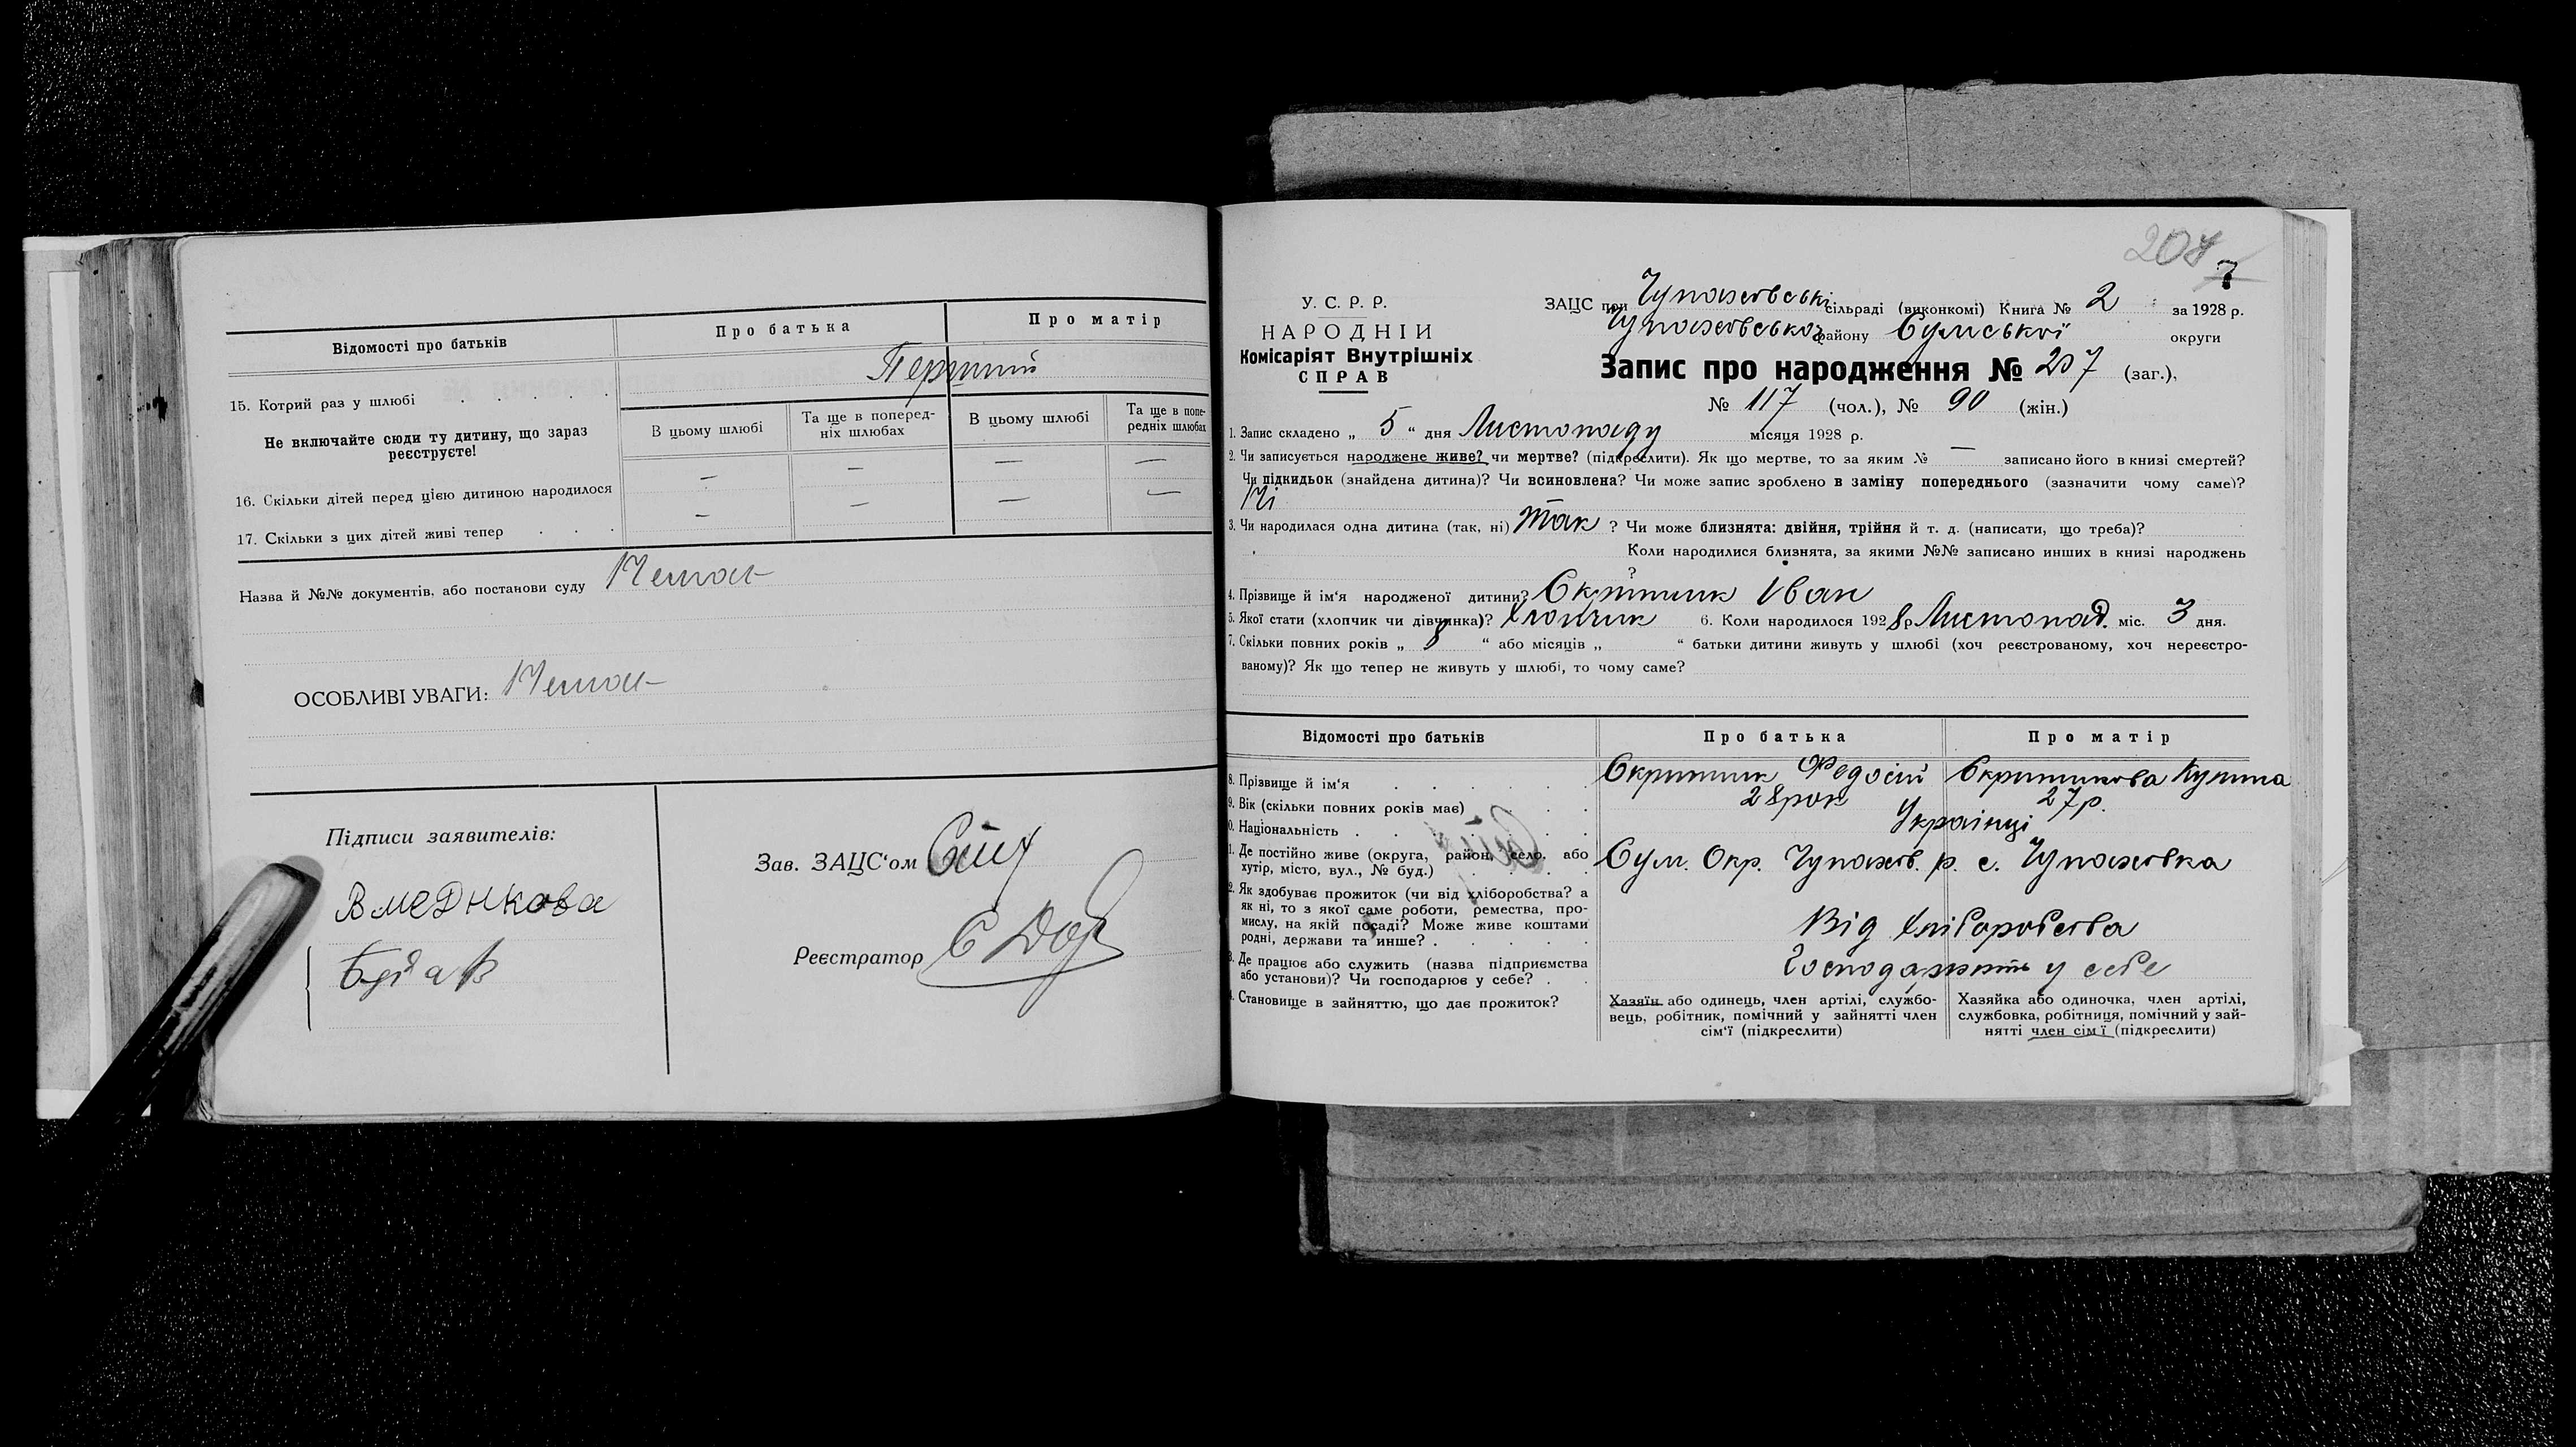 Відомості про батьків
Про батька
Про матір
15. Котрий раз у шлюбі . . . . .
Перший
Не включайте сюди ту дитину, що зараз
реєструєте!
В цьому шлюбі
Та ще в поперед-
ніх шлюбах
В цьому шлюбі
Та ще в попе-
редніх шлюбах
16. Скільки дітей перед цією дитиною народилося
— — — —
17. Скільки з цих дітей живі тепер . . .
— — — —
Назва й №№ документів, або постанови суду Немає
ОСОБЛИВІ УВАГИ: Немає
Підписи заявителів:
В медикова
Зав. ЗАЦС‘ом
Реєстратор
207
У. С. Р. Р.
НАРОДНІЙ
Комісаріят Внутрішніх
СПРАВ
ЗАЦС при Чупахівські сільраді (виконкомі) Книга № 2 за 1928 р.
Чупахівського району Сумської округи
Запис про народження № 207 (заг.),
№ 117 (чол.), № 90 (жін.)
1. Запис складено „ 5 “ дня Листопаду місяця 1928 р.
2. Чи записується народжене живе? чи мертве? (підкреслити). Як що мертве, то за яким № — записано його в книзі смертей?
Чи підкидьок (знайдена дитина)? Чи всиновлена? Чи може запис зроблено в заміну попереднього (зазначити чому саме)?
Ні
3. Чи народилася одна дитина (так, ні) Так ? Чи може близнята: двійня, трійня й т. д. (написати, що треба)?
Коли народилися близнята, за якими №№ записано инших в книзі народжень
?
4. Прізвище й ім‘я народженої дитини? Скрипник Іван
5. Якої стати (хлопчик чи дівчинка)? Хлопчик 6. Коли народилося 1928 р Листопад. міс. 3 дня.
7. Скільки повних років „ 8 “ або місяців „ “ батьки дитини живуть у шлюбі (хоч реєстрованому, хоч нереєстро-
ваному)? Як що тепер не живуть у шлюбі, то чому саме?
Відомості про батьків
Про батька
Про матір
8. Прізвище й ім‘я . . . . . .
Скрипник Федосій
Скрипникова Кулина
9. Вік (скільки повних років має) . . .
28 рок
27 р.
0. Національність . . . . . .
Українці
1. Де постійно живе (округа, район, село, або
хутір, місто, вул., № буд.) . . . .
Сум. Окр. Чупахів. р. с. Чупахівка
2. Як здобуває прожиток (чи від хліборобства? а
як ні, то з якої саме роботи, ремества, про-
мислу, на якій посаді? Може живе коштами
родні, держави та инше? . . . . .
Від хліборобства
3. Де працює або служить (назва підприємства
або установи)? Чи господарює у себе? . .
Господарюють у себе
4. Становище в зайняттю, що дає прожиток?
Хазяїн або одинець, член артілі, службо-
вець, робітник, помічний у зайнятті член
сім‘ї (підкреслити)
Хазяйка або одиночка, член артілі,
службовка, робітниця, помічний у зай-
нятті член сім‘ї (підкреслити)